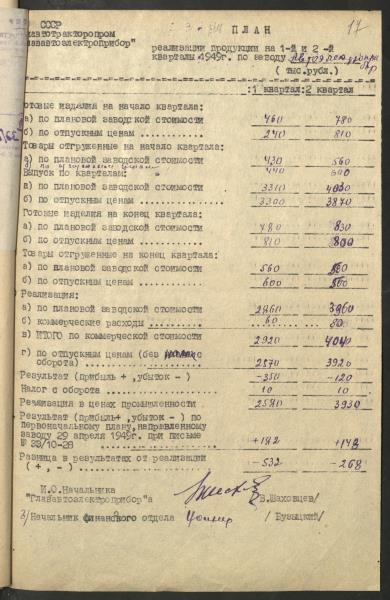 СССР
Главтракторопром
Глававтоэлектроприбор"
ПЛАН
17
реализации продукции на 1-й и 2-й
кварталы 1949г. по заводу
( тыс.рубл.)
:1 квартал:2 квартал
Готовые изделия на начало квартала:
а) по плановой заводской стоимости 460 780
б) по отпускным ценам 240 810
Товары отгруженные на начало квартала:
а) по плановой заводской стоимости 430 560
440 600
Выпуск по кварталам:
а) по плановой заводской стоимости 3310 4030
б) по отпускным ценам 3300 3870
Готовые изделия на конец квартала:
а) по плановой заводской стоимости 780 830
б) по отпускным ценам 810 800
Товары отгруженные на конец квартала:
а) по плановой заводской стоимости 560
б) по отпускным ценам 600
Реализация:
а) по плановой заводской стоимости 2860 3960
б) коммерческие расходы 60 80
в) ИТОГО по коммерческой стоимости 2920 4040
г) по отпускным ценам (без с
оборота) 2570 3920
Результат (прибыль + ,убыток - ) -350 -120
Налог с оборота 10 10
Реализация в ценах промышленности 2580 3930
Результат (прибыль+ ,убыток - ) по
первоначальному плану,направленному
заводу 29 апреля 1949г. При письме
№ 23/10-28 +182 +148
Разница в результатах от реализации
( + , - ) -532 -268
И.О.Начальника
"Глававтоэлектроприбор"а В.Шаховцев/
З/Начальник финансового отдела / Бузыцкий/